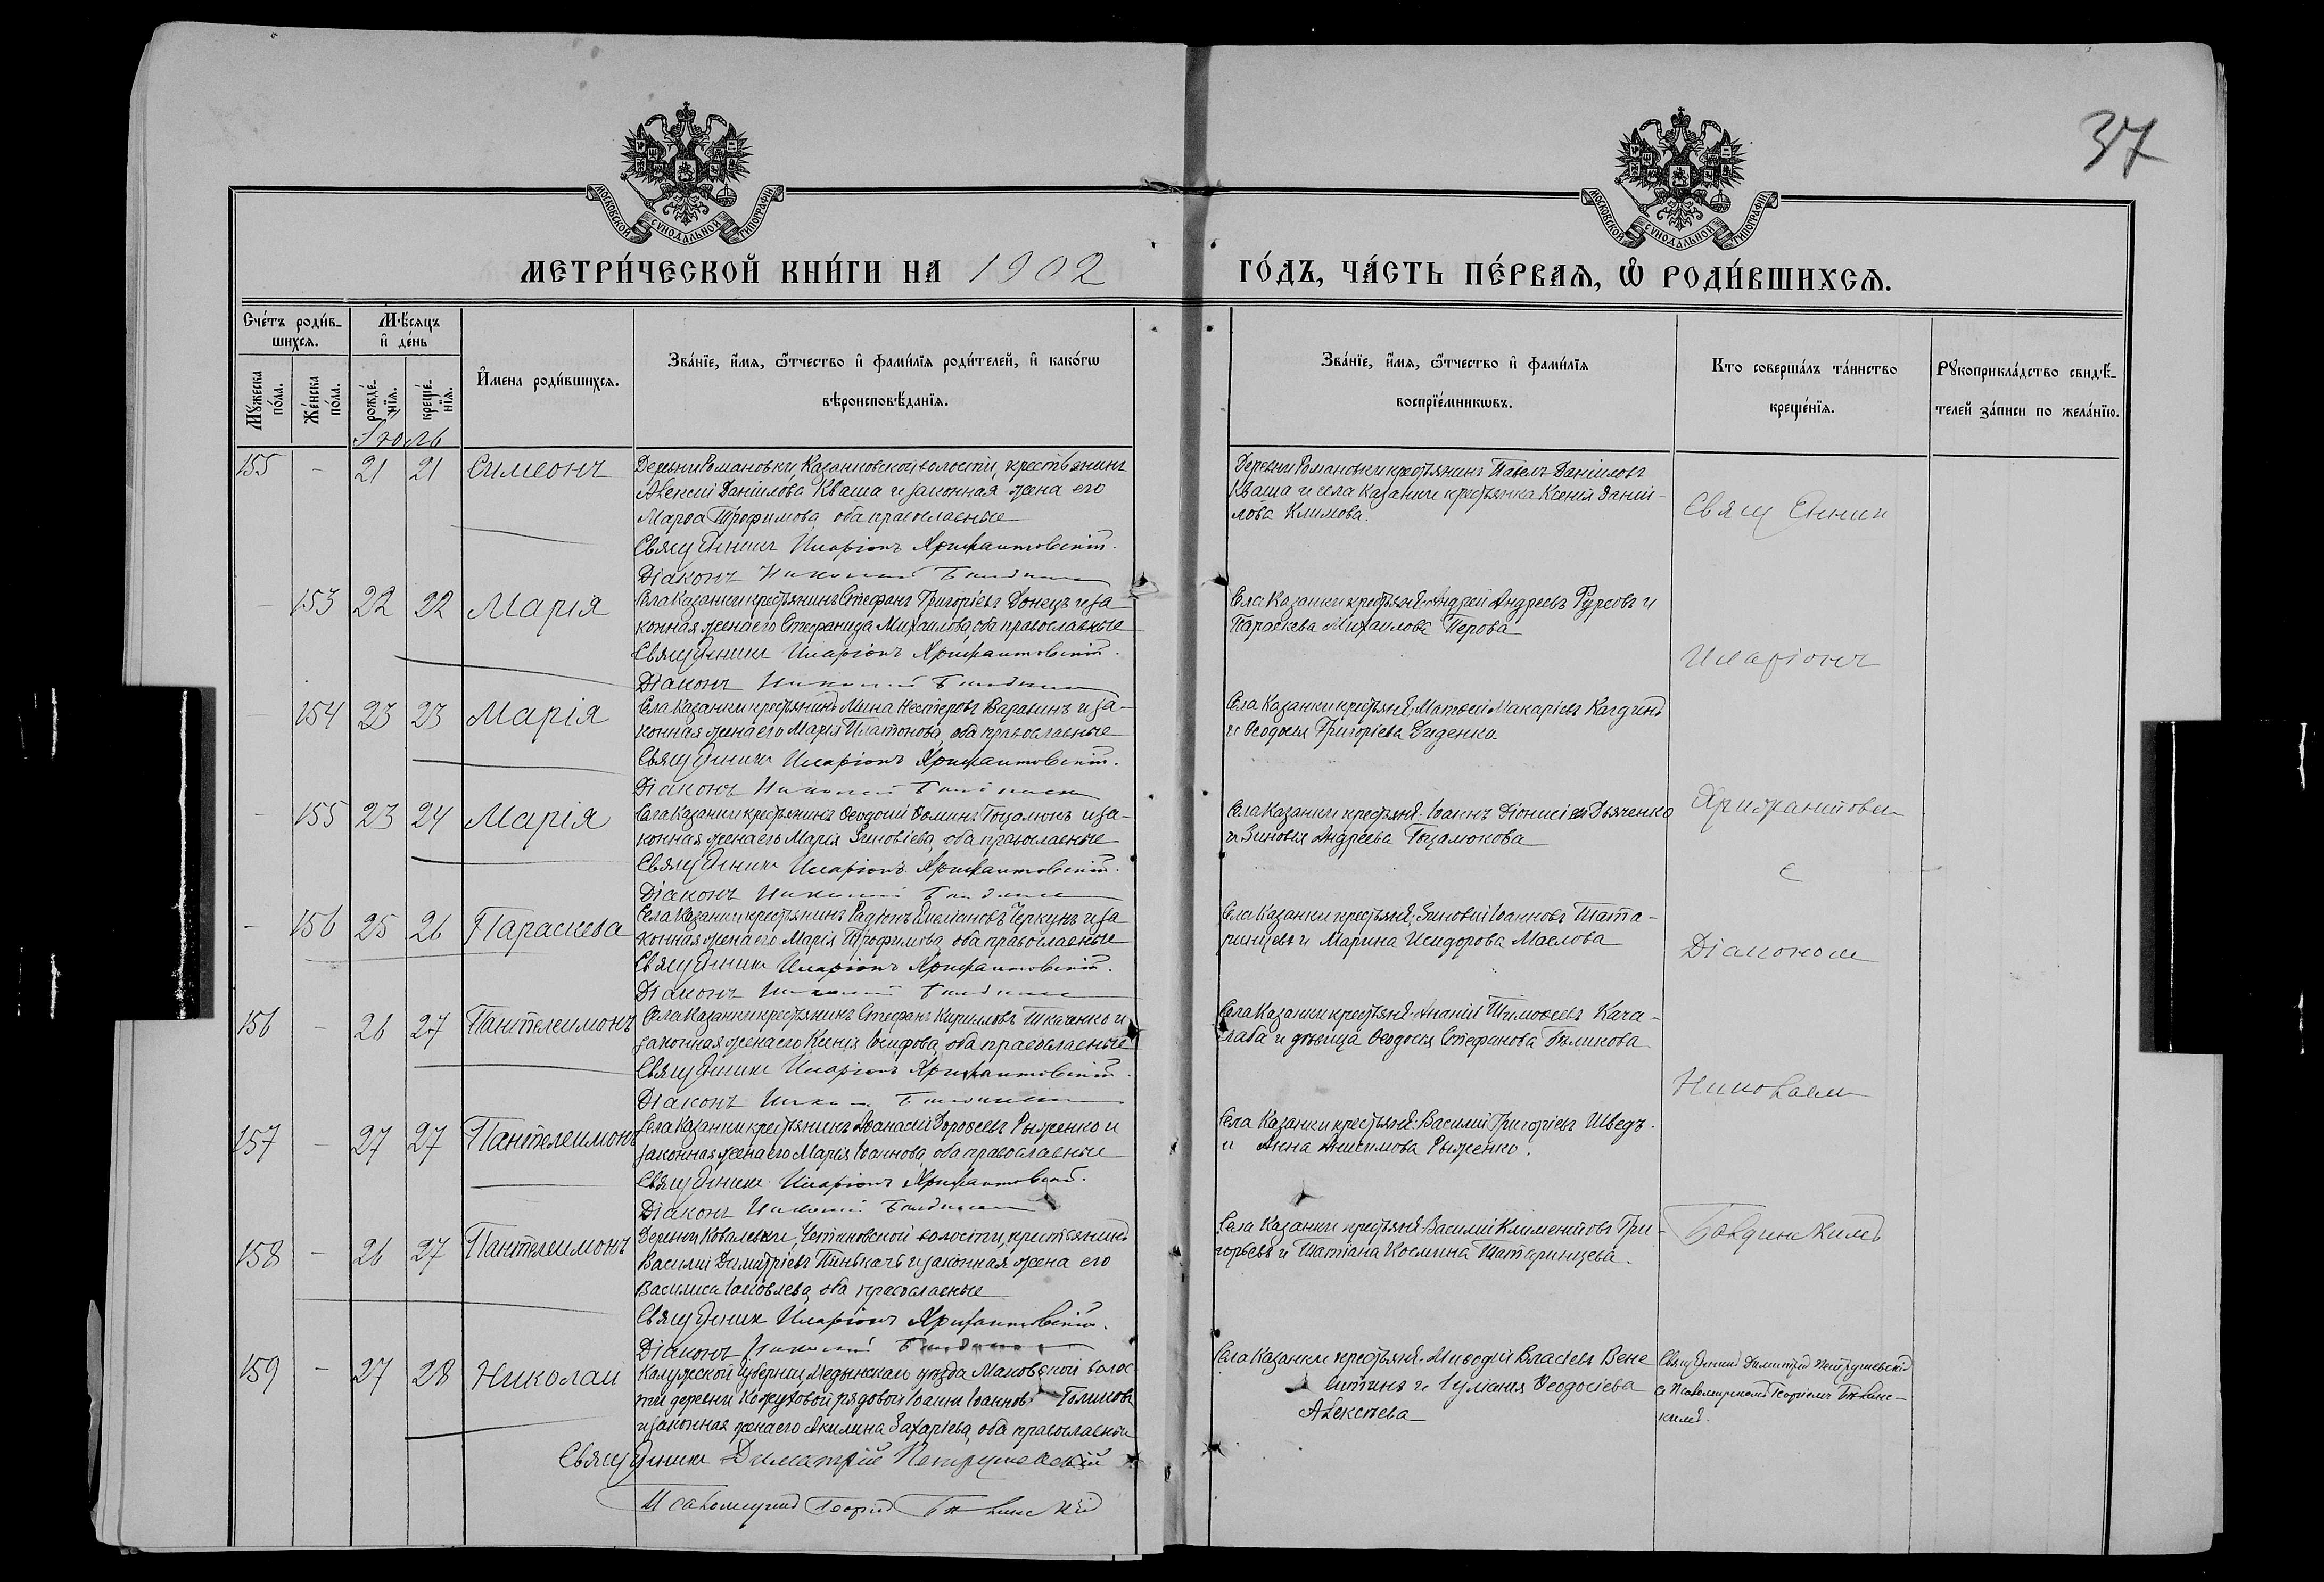 37
МОСКОВСКОЙ СѴНОДАЛЬНОЙ ТИПОГРАФІИ.
МОСКОВСКОЙ СѴНОДАЛЬНОЙ ТИПОГРАФІИ.
МЕТРИ́ЧЕСКОЙ КНИ́ГИ НА 1902
ГО́ДЪ, ЧА́СТЬ ПЕ́РВАѦ, Ѽ РОДИ́ВШИХСѦ.
Сче́тъ роди́в-
шихсѧ.
Мꙋ́жеска по́ла.
Же́нска по́ла.
Мѣ́сѧцъ
и҆ де́нь
рожде́-
нїѧ.
креще́-
нїѧ.
И҆мена роди́вшихсѧ.
Зва́нїе, и҆́мѧ, ѻ҆́тчество и҆ фами́лїѧ роди́телей, и҆ како́гѡ
вѣроисповѣ́данїѧ.
Зва́нїе, и҆́мѧ, ѻ҆́тчество и҆ фами́лїѧ
воспрїе́мникѡвъ.
Кто соверша́лъ та́инство
креще́нїѧ.
Рꙋкоприкла́дство свидѣ́-
телей за́писи по жела́нїю.
Іюль
155 - 21 21 Симеонъ
Деревни Романовки Казанковской волости, крестьянинъ
Алексій Даніиловъ Кваша и законная жена его
Марѳа Трофимова, оба православные
Священникъ Иларіонъ Хрисанѳовскій.
Діаконъ Николай
Деревни Романовки крестьянинъ Павелъ Даніиловъ
Кваша и села Казанки крестьянка Ксенія Даніи-
лова Климова.
Священник
- 153 22 22 Марія
Села Казанки крестьянинъ Стефанъ Григоріевъ Донецъ и за-
конная жена его Стефанида Михаилова, оба православные
Священникъ Иларіонъ
Діаконъ Николай
Села Казанки крестьяне: Андрей Андреевъ Гурсовъ и
Параскева Михаилова Перова
Иларіонъ
154 23 23 Марія
Села Казанки крестьянинъ Мина Несторовъ Варавинъ и за-
конная жена его Марія Платонова, оба православные
Священникъ Иларіонъ
Діаконъ Николай
Села Казанки крестьяне: Матѳей Макаріевъ
и Ѳеодосія Григоріева Диденко
- 155 23 24 Марія
Села Казанки крестьянинъ Ѳеодосій Ѳоминъ Гоцалюкъ и за-
конная жена его Марія Зиновіева, оба православные
Священникъ Иларіонъ
Діаконъ Николай
Села Казанки крестьяне: Іоаннъ Діонисіевъ Дьяченко
и Зиновія Андреева Гоцалюкова
с
- 156 25 26 Параскева
Села Казанки крестьянинъ Родіонъ Емеліановъ Черкунъ и за-
конная жена его Марія Трофимова, оба православные
Священникъ Иларіонъ
Діаконъ Николай
Села Казанки крестьяне: Зиновій Іоанновъ Тата-
ринцевъ и Марина Исидорова Маслова
Діаконом
156 - 26 27 Пантелеимонъ
Села Казанки крестьянинъ Стефанъ Кирилловъ Ткаченко и
законная жена его Ксенія Іосифова, оба православные
Священникъ Иларіонъ
Діаконъ Николай
Села Казанки крестьяне: Ананій Тимоѳеевъ Кага-
и дѣвица Ѳеодосія Стефанова Бѣликова
Николаем
157 - 27 27 Пантелеимонъ
Села Казанки крестьянинъ Аѳанасій Дороѳеевъ Рыженко и
законная жена его Марія Іоаннова, оба православные
Священникъ Иларіонъ
Діаконъ Николай
Села Казанки крестьяне: Василій Григоріевъ Шведъ
и Анна Анисимова Рыженко.
158 - 26 27 Пантелеимонъ
Деревни Ковалевки, волости, крестьянинъ
Василій Димитріевъ и законная жена его
Василиса Іаковлева, оба православные
Священникъ Иларіонъ
Діаконъ Николай
Села Казанки крестьяне: Василій Климентовъ Гри-
горьевъ и Татіана Космина Татаринцева.
159 - 27 28 Николай
Калужской губерніи Медынскаго уѣзда Маковской волос-
ти деревни Кожуховой рядовой Іоаннъ Іоанновъ Голиковъ
и законная жена его Акилина Захаріева, оба православные
Священникъ Димитрій Петрушевскій
Псаломщикъ Георгій
Села Казанки крестьяне: Меѳодій Власіевъ Вене-
и Іуліанія Ѳеодосіева
Алексѣева
Священникъ Димитрій Петрушевскій
с Псаломщикомъ Георгіемъ